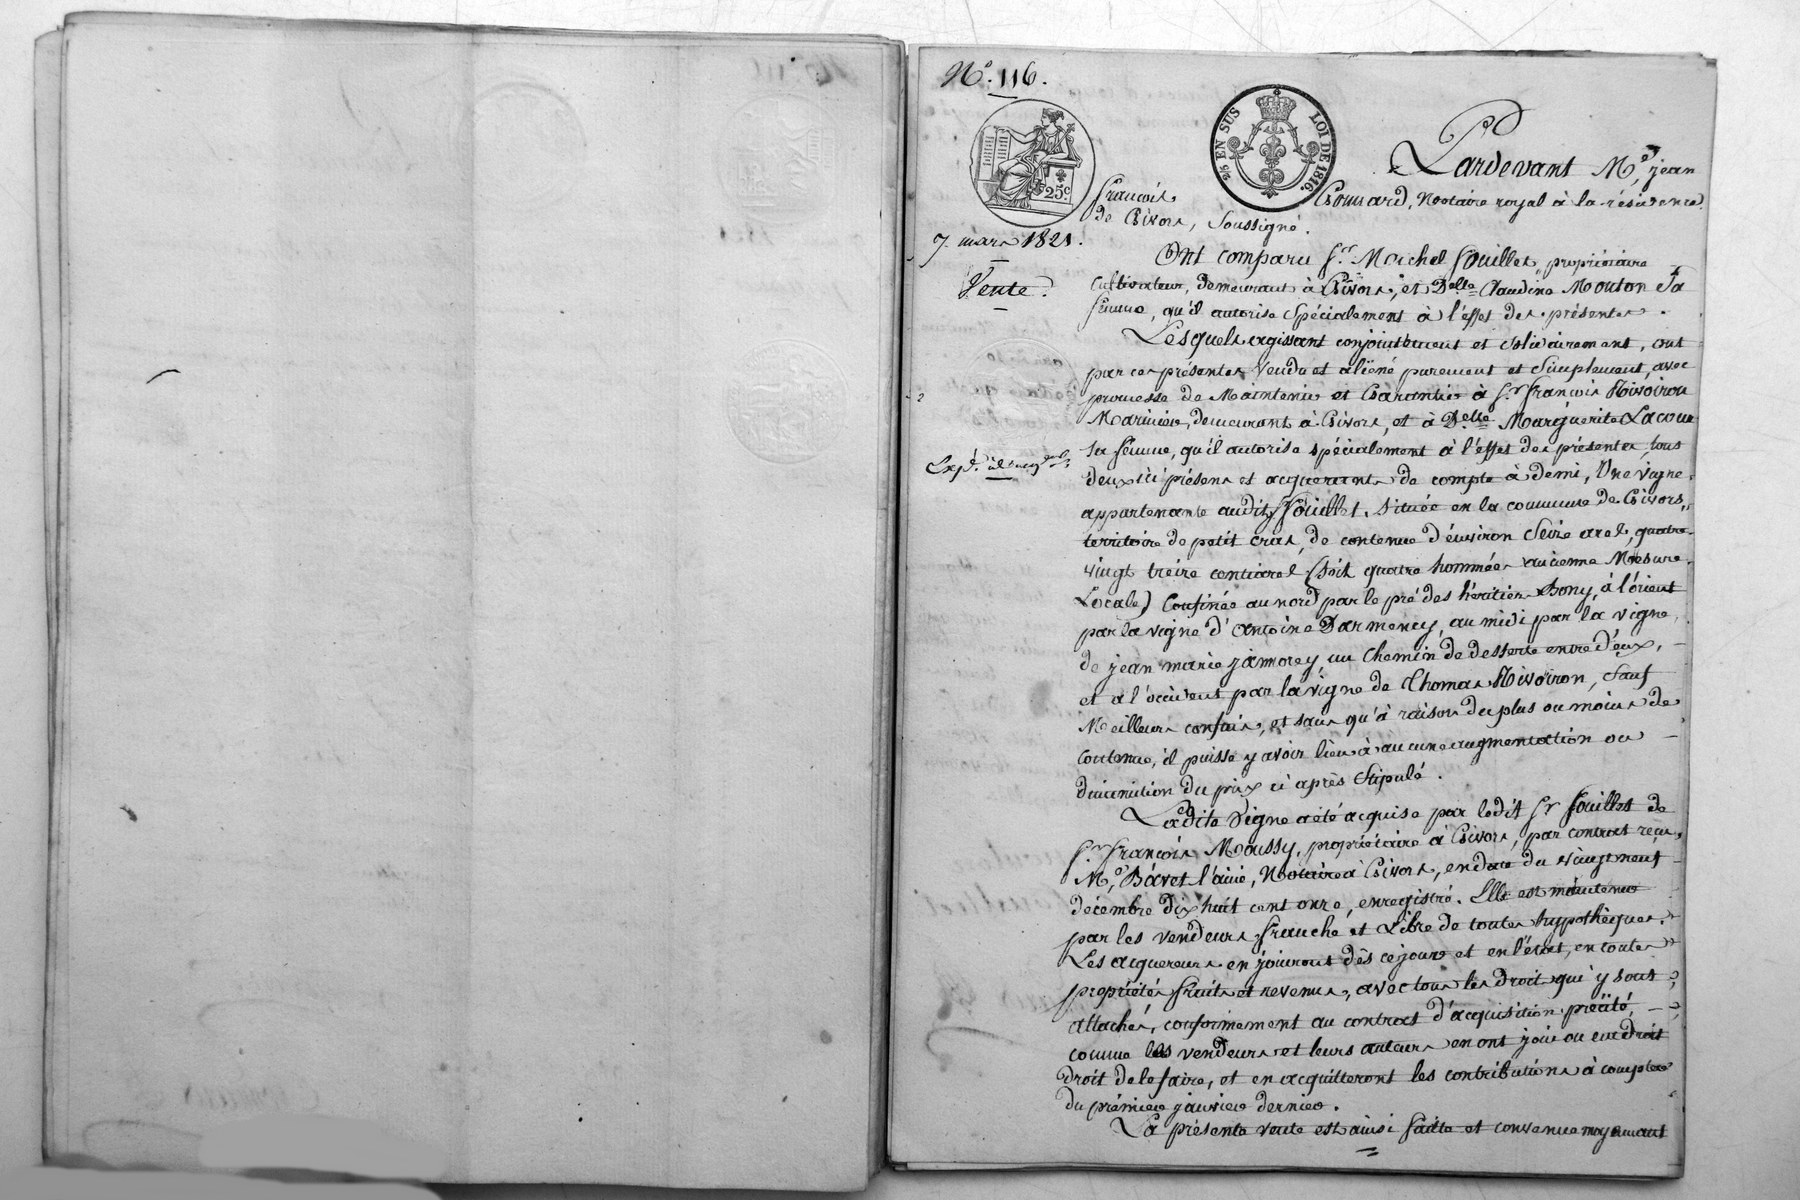 N.° 116.
25 EN SUS LOI DE 1816.
25.c
Pardevant M.e jean
françois Gonnard, Notaire royal à la résidence
de Givors, soussigné.
7. mars 1821.
Vente.
Ont comparu S.r Michel fouillet, propriétaire
cultivateur, demeurant à Givors, et D.elle Claudine Mouton sa
femme, qu'il autorise spécialement à l'effet des présentes.
Lesquels agissant conjointement et solidairement, ont
par ces présentes vendu et aliéné purement et simplement, avec
promesse de Maintenir et Garantir à S.r françois Rivoiron
Marinier, demeurant à Givors, et à D.elle Marguerite Lacour
sa femme, qu'il autorise spécialement à l'effet des présentes, tous
Exp.é
deux ici présens et acquerants de compte à demi, Une vigne
appartenante audit S.r fouillet, située en la commune de Givors,
territoire de petit cras, de contenue d'environ seize ares, quatre
vingt treize centiares (soit quatre hommées ancienne Mesure
Locale) Confinée au nord par le pré des héritiers Bony, à l'orient
par la vigne d'Antoine Darmency, au midi par la vigne
de jean marie jamorey, un chemin de desserte entre d'eux,
et à l'occident par la vigne de Thomas Rivoiron, sauf
Meilleurs confins, et sans qu'à raison du plus ou moins de
contenue, il puisse y avoir lieu à aucune augmentation ou
diminution du prix ci après stipulé.
Ladite Vigne a été acquise par ledit S.r fouillet de
S.r françois Moussy, propriétaire à Givors, par contrat reçu
M.e Bavet l'ainé, Notaire à Givors, en date du vingt neuf
décembre dix huit cent onze, enregistré. Elle est maintenue
par les vendeurs franche et Libre de toutes hypothèques.
Les acquereurs en jouiront dès ce jour et en l'état, en toutes
propriétés fruits et revenus, avec tous les droits qui y sont
attachés, conformément au contrat d'acquisition précité,
comme les vendeurs et leurs auteurs en ont joui ou eu droit
droit de le faire, et en acquitteront les contributions à compter
du prémier janvier dernier.
La présente vente est ainsi faite et convenue moyennant